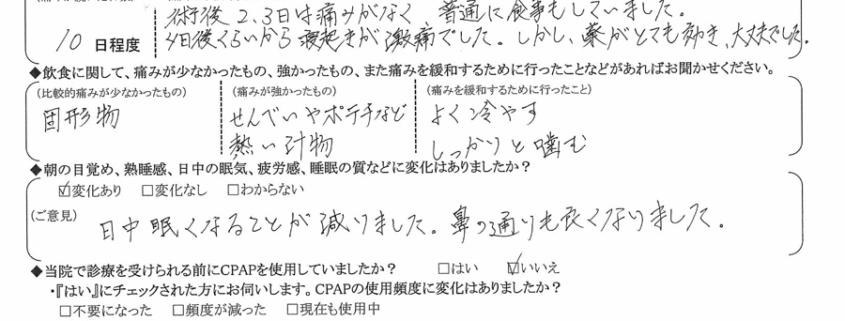 術後2,3日は痛みがなく 普通に食事もしていました。
10 日程度 4日後くらいから寝起きが激痛でした。しかし、薬がとても効き、大丈夫でした。
◆飲食に関して、痛みが少なかったもの、強かったもの、また痛みを緩和するために行ったことなどがあればお聞かせください。
(比較的痛みが少なかったもの) (痛みが強かったもの) (痛みを緩和するために行ったこと)
固形物 せんべいやポテチなど よく冷やす
熱い汁物 しっかりと噛む
◆朝の目覚め、熟睡感、日中の眠気、疲労感、睡眠の質などに変化はありましたか?
☑変化あり □変化なし □わからない
(ご意見) 日中眠くなることが減りました。鼻の通りも良くなりました。
◆当院で診療を受けられる前にCPAPを使用していましたか? □はい ☑いいえ
・『はい』にチェックされた方にお伺いします。CPAPの使用頻度に変化はありましたか?
□不要になった □頻度が減った □現在も使用中